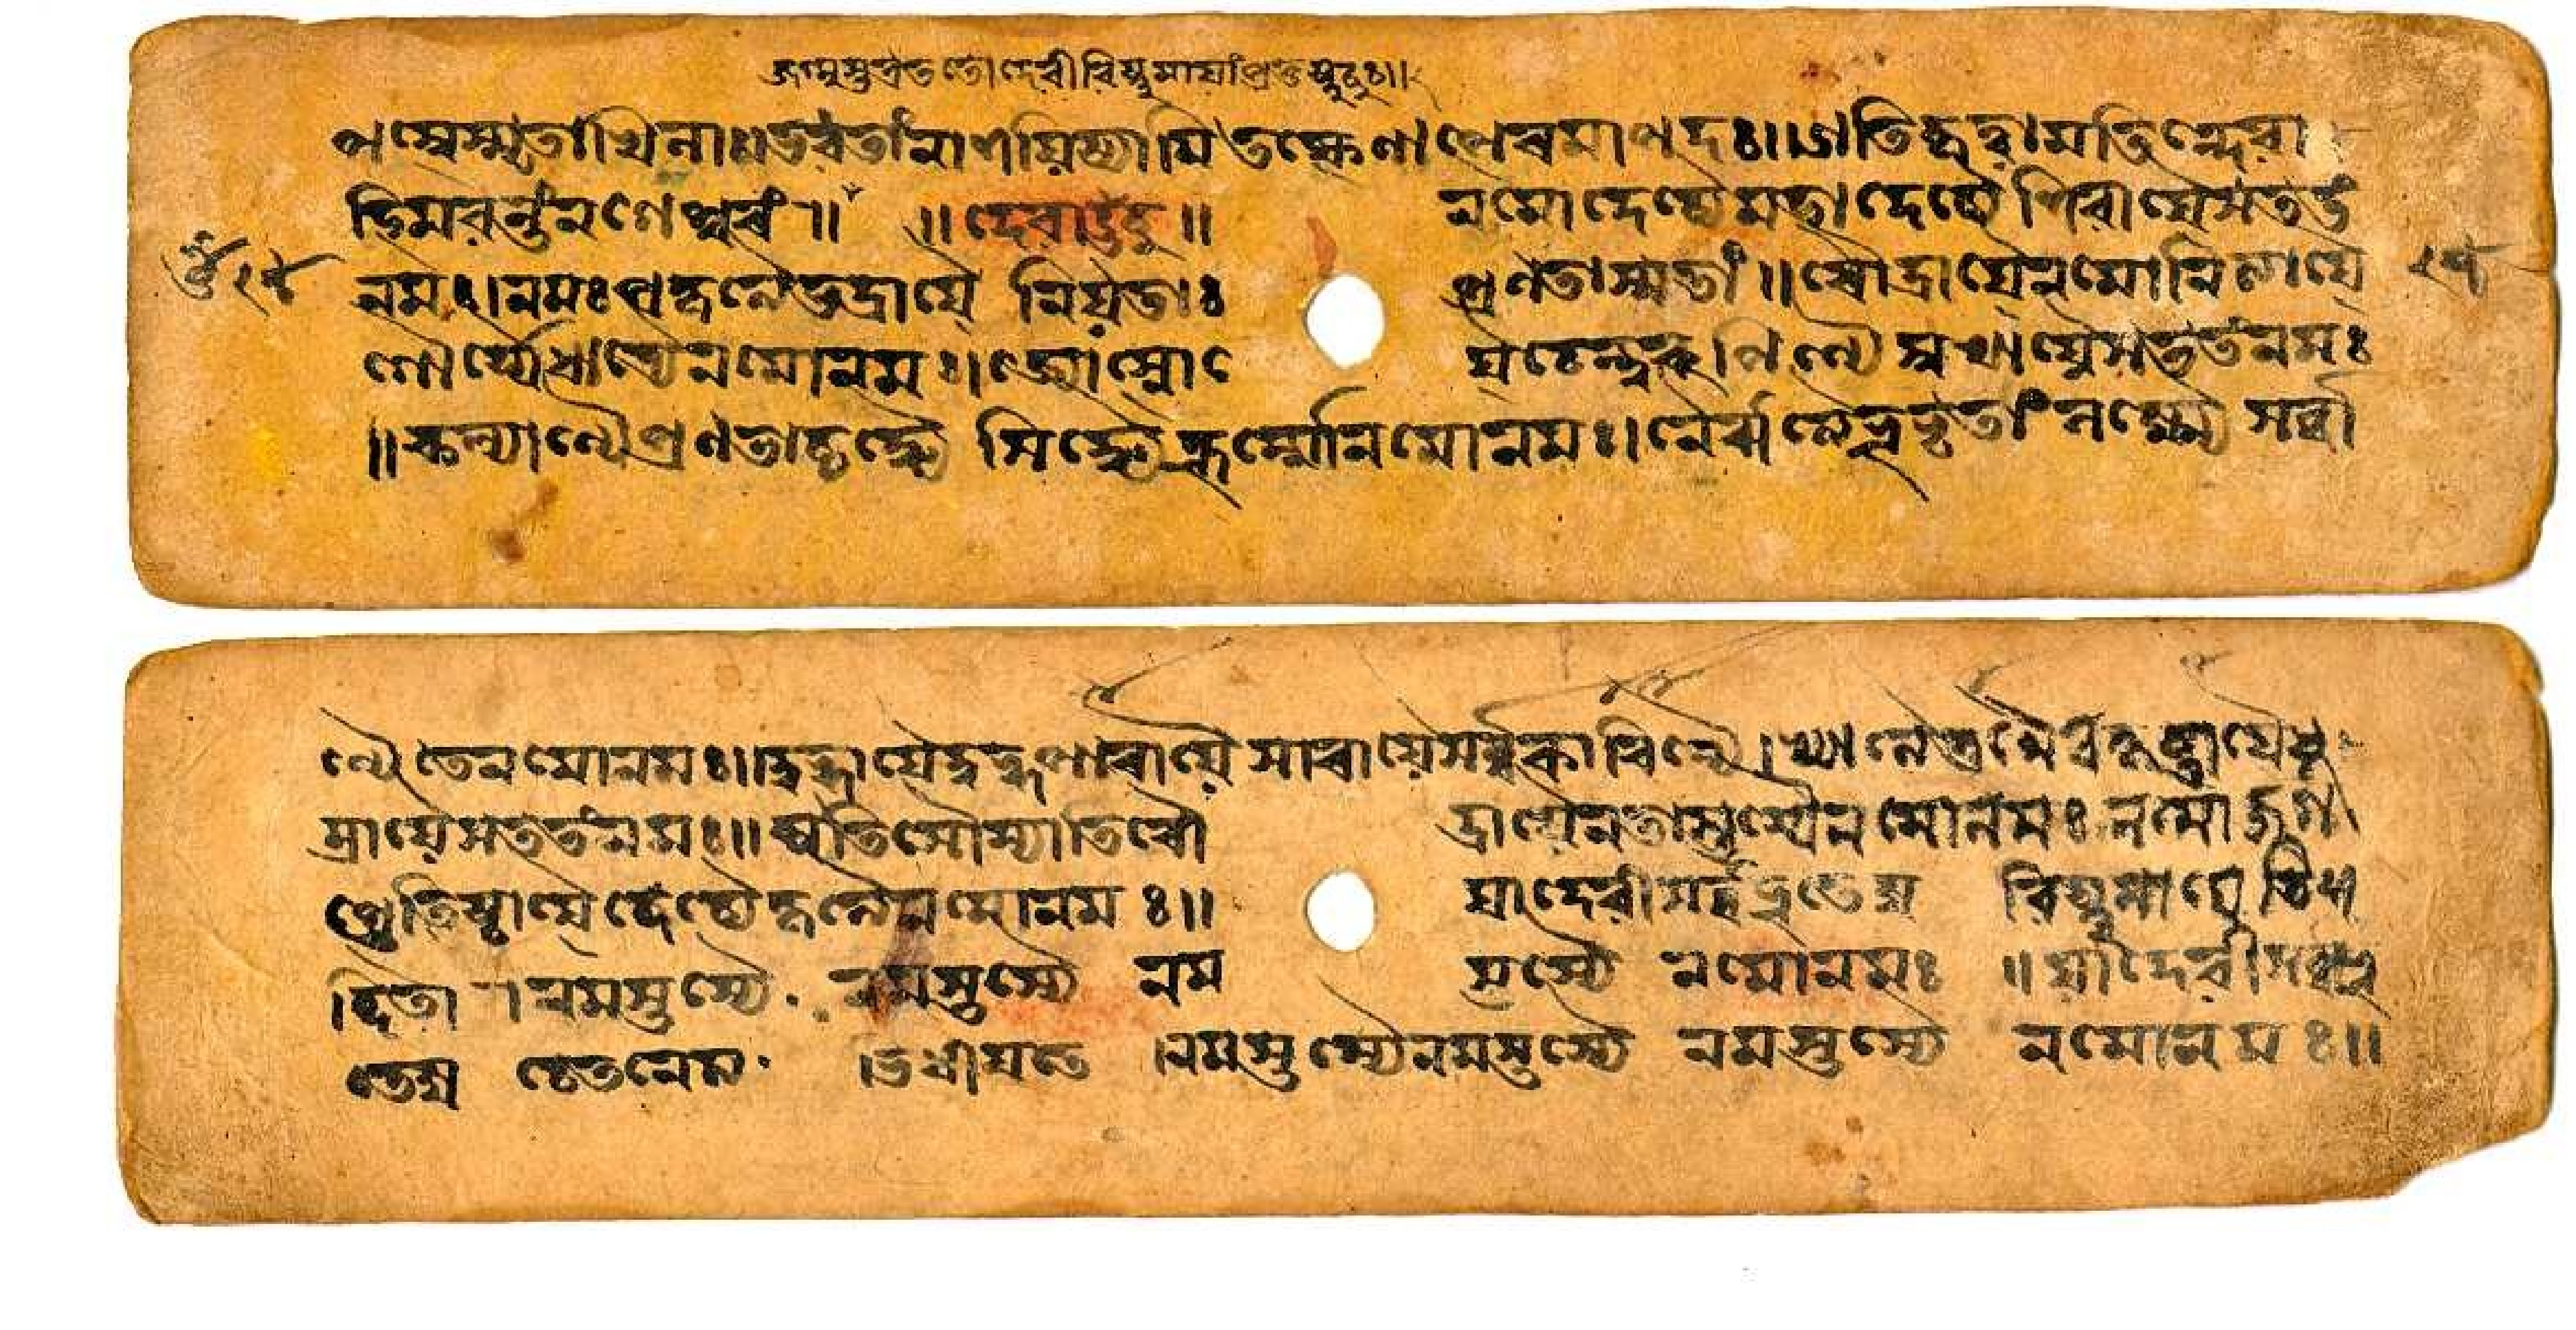 জগ্মুস্তত্রততোদেবীংবিষ্ণুমাযাংপ্রতুষ্টুবুঃ॥
পৎসুস্মৃতাখিলাঃ॥ভবতাংনাশয়িষ্যামি তৎক্ষণাৎপৰমাপদঃ॥ইতিকৃত্বামতিন্দেবা
হিমবন্তংনগেশ্বৰং॥ ॥দেবাউচু॥ নমোদেব্যৈমহাদেব্যৈ শিবায়ৈসততং
নমঃ।নমঃপ্রকৃত্যৈভদ্রায়ৈ নিয়তাঃ প্রণতাস্মতাং॥ৰৌদ্রায়ৈনমোনিত্যায়ৈ
গৌৰ্য্যৈধাত্র্যৈনমোনমঃ।জ্যোৎস্নায়ৈ চেন্দুৰূপিণ্যৈ সুখায়ৈসততংনমঃ
॥কল্যাণ্যৈপ্রণতাবৃদ্ধ্যৈ সিদ্ধ্যৈকূর্ম্মোনমোনমঃ।নৈৰৃত্যৈভূভৃতাং লক্ষ্ম্যৈ সর্ব্বা
ণ্যৈ তেনমোনমঃ॥দুর্গায়ৈদুর্গপাৰায়ৈ সাৰায়ৈসর্ব্বকাৰিণ্যৈ।খ্যাত্যৈতথৈবকৃষ্ণায়ৈধূ
ম্রায়ৈসততংনমঃ॥অতিসৌম্যাতিৰৌ দ্রায়ৈনতাস্তস্যৈনমোনমঃ নমোজগ
ৎপ্রতিষ্ঠায়ৈ দেব্যৈকৃত্যৈনমোনমঃ॥ যাদেবীসর্ব্বভূতেষু বিষ্ণুমায়েতিশ
ব্দিতা।নমস্তস্যৈ নমস্তস্যৈ নম স্তস্যৈ নমোনমঃ ॥যাদেবীসর্ব্বভূ
তেষু চেতনেত্য ভিধীয়তে।নমস্তস্যৈনমস্তস্যৈ নমস্তস্যৈ নমোনমঃ॥